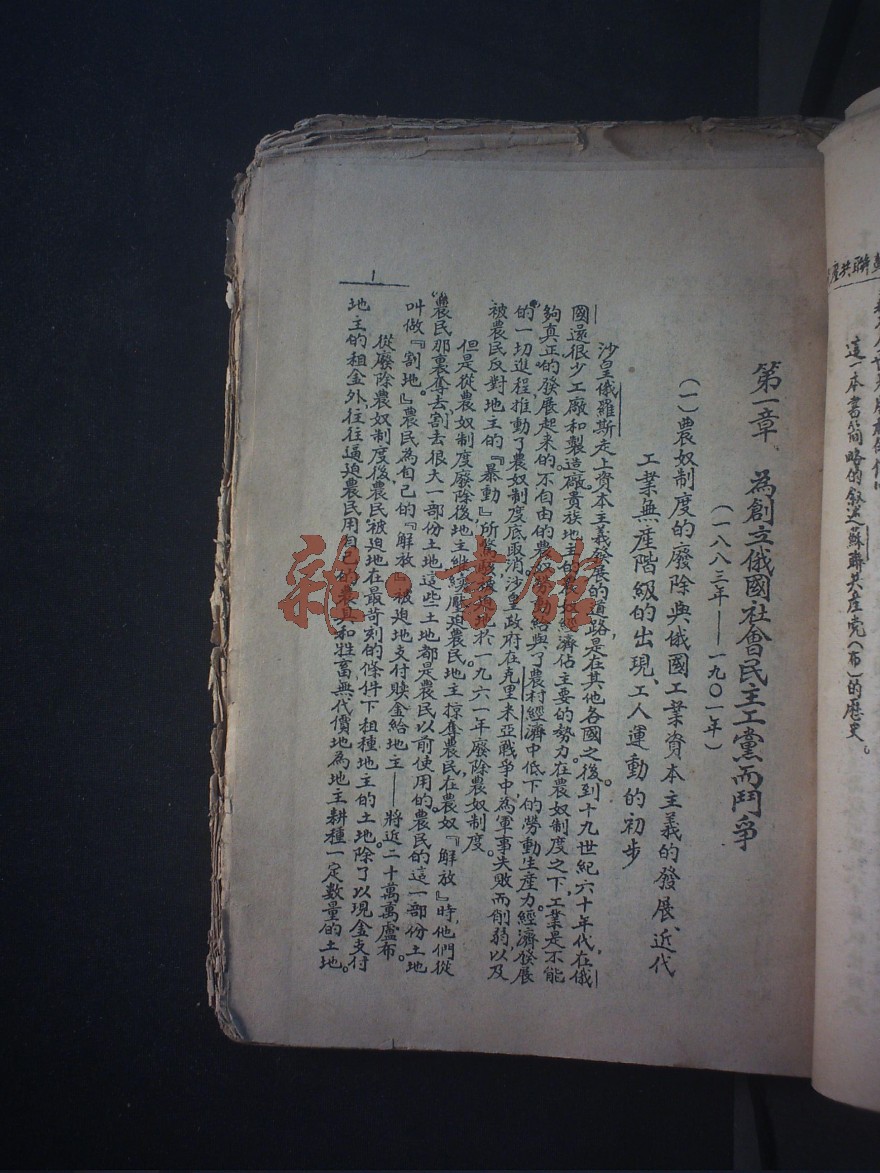 聯共產
這一本書簡略的叙述蘇聯共產党(布)的歷史。
第一章 為創立俄國社會民主工黨而鬥爭
(一八八三年——一九〇一年)
(一)農奴制度的廢除與俄國工業資本主義的發展、近代
工業無產階級的出現、工人運動的初步
沙皇俄羅斯走上資本主義發展的道路是在其他各國之後,到十九世紀六十年代在俄
國還很少工廠和製造廠。貴族地主的農奴經濟佔主要的勢力。在農奴制度之下,工業是不能
夠真正的發展起來的。不自由的農奴勞動給與了農村經濟中低下的勞動生產力。經濟發展
的一切進程推動了農奴制度底取消。沙皇政府在克里米亞戰爭中為軍事失敗而削弱,以及
被農民反對地主的『暴動』所於一九六一年廢除農奴制度。
但是從農奴制度廢除後地主繼續壓迫農民。地主掠奪農民,在農奴『解放』時,他們從
農民那裏奪去、割去很大一部份土地,這些土地都是農民以前使用的。農民的這一部份土地
叫做『割地』。農民為自己的『解放』被迫地支付贖金給地主——將近二十萬萬盧布。
從廢除農奴制度後,農民被迫地在最苛刻的條件下租種地主的土地。除了以現金支付
地主的租金外,往往逼迫農民用自己的農具和牲畜無代價地為地主耕種一定數量的土地。
1
雜·書館